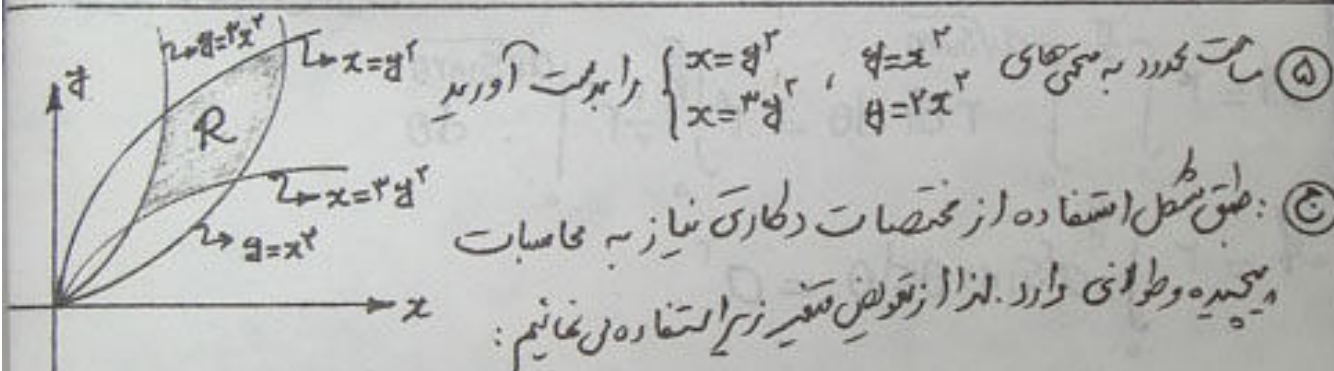 ⑤ مساحت محدود به منحنی های { x=y² , y=x² را بدست آورید
x=۳y² y=۲x²
ج : طبق شکل استفاده از مختصات دکارتی نیاز به محاسبات
پیچیده و طولانی دارد. لذا از تعویض متغیر زیر استفاده می نمائیم :
y
y=۲x²
x=y²
R
x=۳y²
y=x²
x